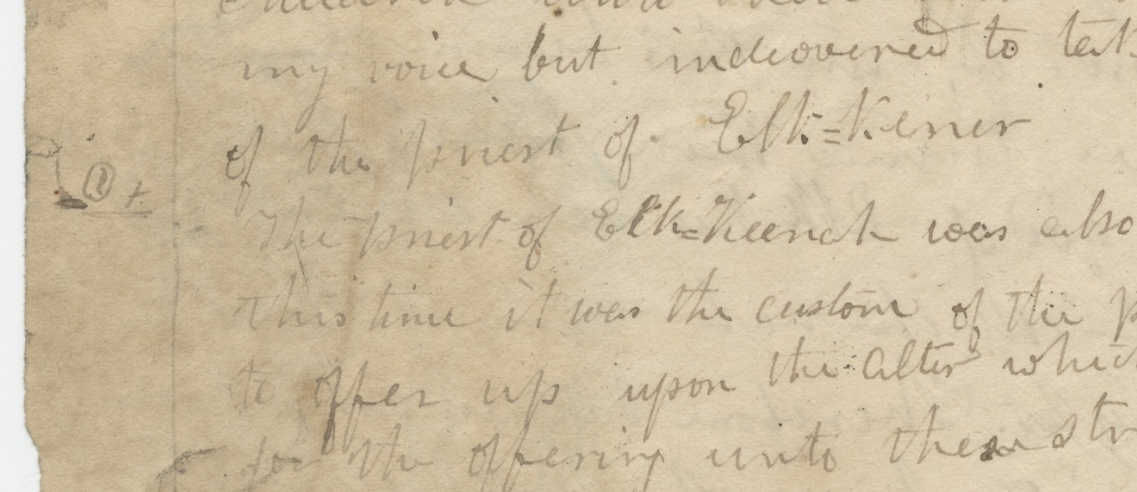 my voice but indeovered to
of the priest of Elk=Kener
The priest of Elk=Keenah was also
this time it was the custom of the
to offer up upon the alter which
for the offering unto these